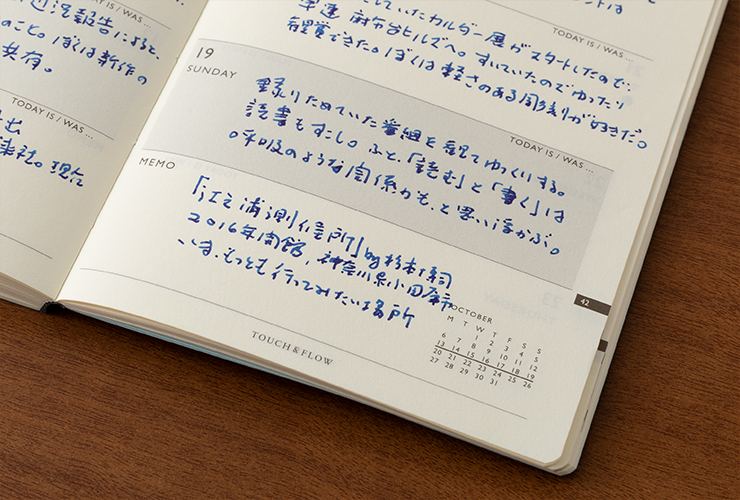 近況報告によると、
のこと。ぼくは新作の
共有。
TODAY IS / WAS ...
出
していたカルダー展がスタートしたので、
早速 麻布台ヒルズへ。すいていたのでゆったり
できた。ぼくは軽さのある が好きだ。
TODAY IS / WAS ...
19
SUNDAY
録りためていた番組を観てゆっくりする。
読書もすこし。ふと、「読む」と「書く」は
呼吸のような関係かも、と思い浮かぶ。
TODAY IS / WAS ...
MEMO
「江之浦測候所」by 杉本博司
2016年開館，神奈川県小田原市
いま、もっとも行ってみたい場所
42
OCTOBER
M T W T F S S
1 2 3 4 5
6 7 8 9 10 11 12
13 14 15 16 17 18 19
20 21 22 23 24 25 26
27 28 29 30 31
TOUCH & FLOW